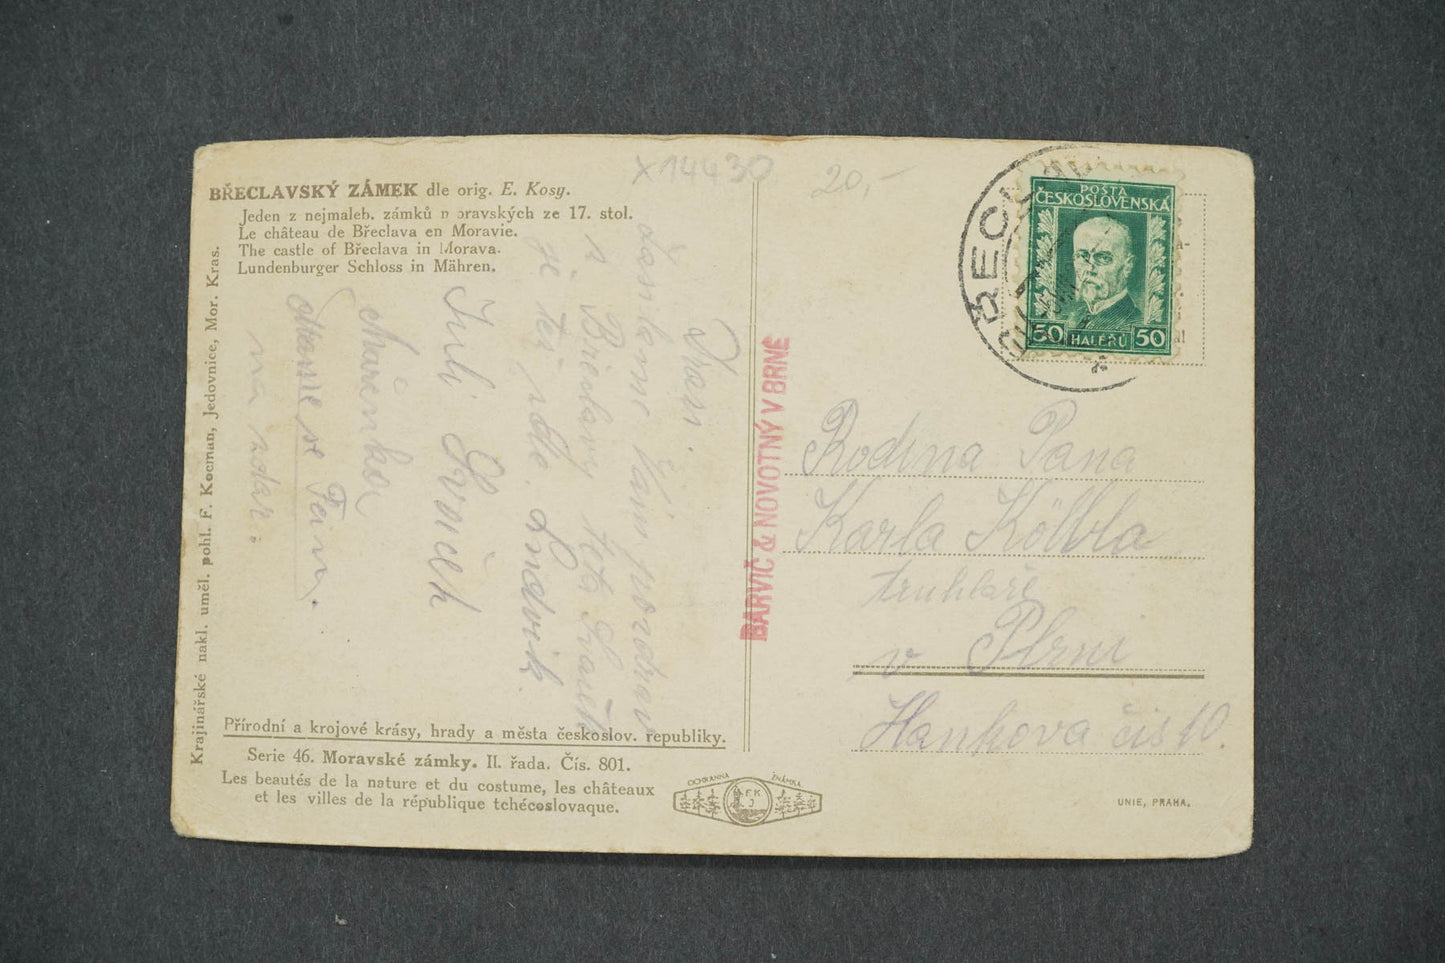 x 14430
20,-
BŘECLAVSKÝ ZÁMEK dle orig. E. Kosy.
Jeden z nejmaleb. zámků moravských ze 17. stol.
Le château de Břeclava en Moravie.
The castle of Břeclava in Morava.
Lundenburger Schloss in Mähren.
Krajinářské nakl. uměl. pohl. F. Kocman, Jedovnice, Mor. Kras.
Vám
z Břeclavy teta
je též zde. Ludvík.
Mařenka
na zdar.
BARVIČ & NOVOTNÝ V BRNĚ
POŠTA
ČESKOSLOVENSKÁ
50 HALÉŘŮ 50
Rodina Pana
Karla Kölbla
truhláře
v Plzni
Hankova čís 10.
Přírodní a krojové krásy, hrady a města českoslov. republiky.
Serie 46. Moravské zámky. II. řada. Čís. 801.
Les beautés de la nature et du costume, les châteaux
et les villes de la république tchécoslovaque.
OCHRANNA ZNÁMKA
F K J
UNIE, PRAHA.